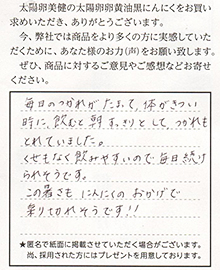 太陽卵美健の太陽卵卵黄油黒にんにくをお買い
求めいただき、ありがとうございます。
今、弊社では商品をより多くの方に実感していた
だくために、あなた様のお力(声)をお願い致します。
ぜひ、商品に対するご意見やご感想などお寄せ
ください。
毎日のつかれがたまって、体がきつい
時に、飲むと朝すっきりとして、つかれも
とれていました。
くせもなく飲みやすいので毎日続け
られそうです。
この暑さもにんにくのおかげで
乗りきれそうです!!
★匿名で紙面に掲載させていただく場合がございます。
尚、採用された方にはプレゼントを用意しております。